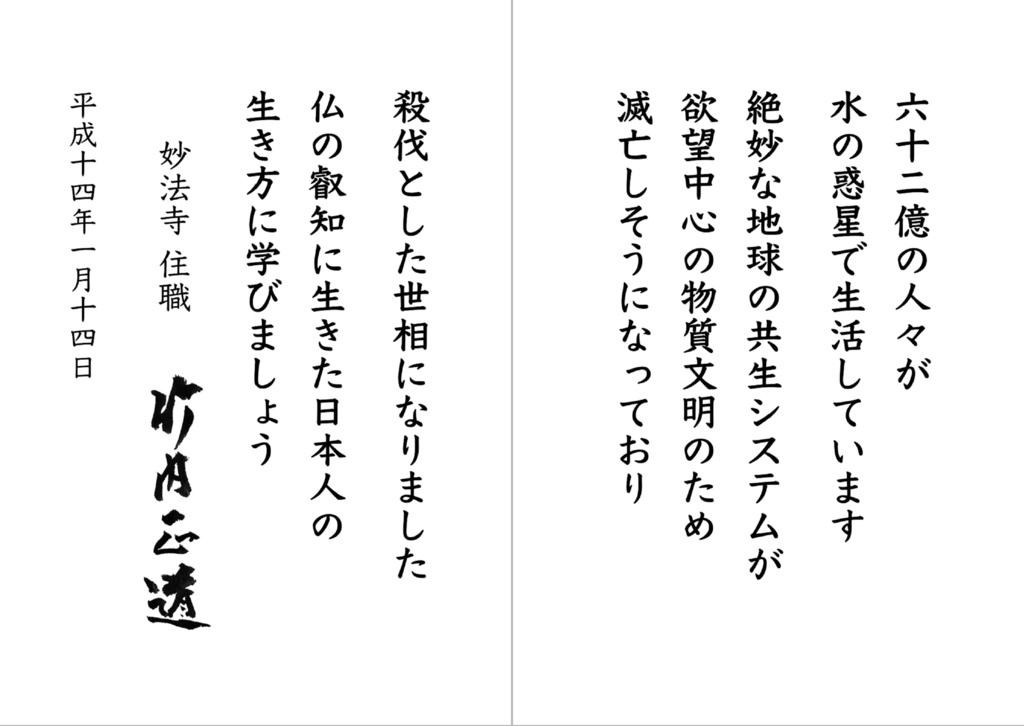 六十二億の人々が
水の惑星で生活しています
絶妙な地球の共生システムが
欲望中心の物質文明のため
滅亡しそうになっており
殺伐とした世相になりました
仏の叡知に生きた日本人の
生き方に学びましょう
妙法寺 住職
平成十四年一月十四日